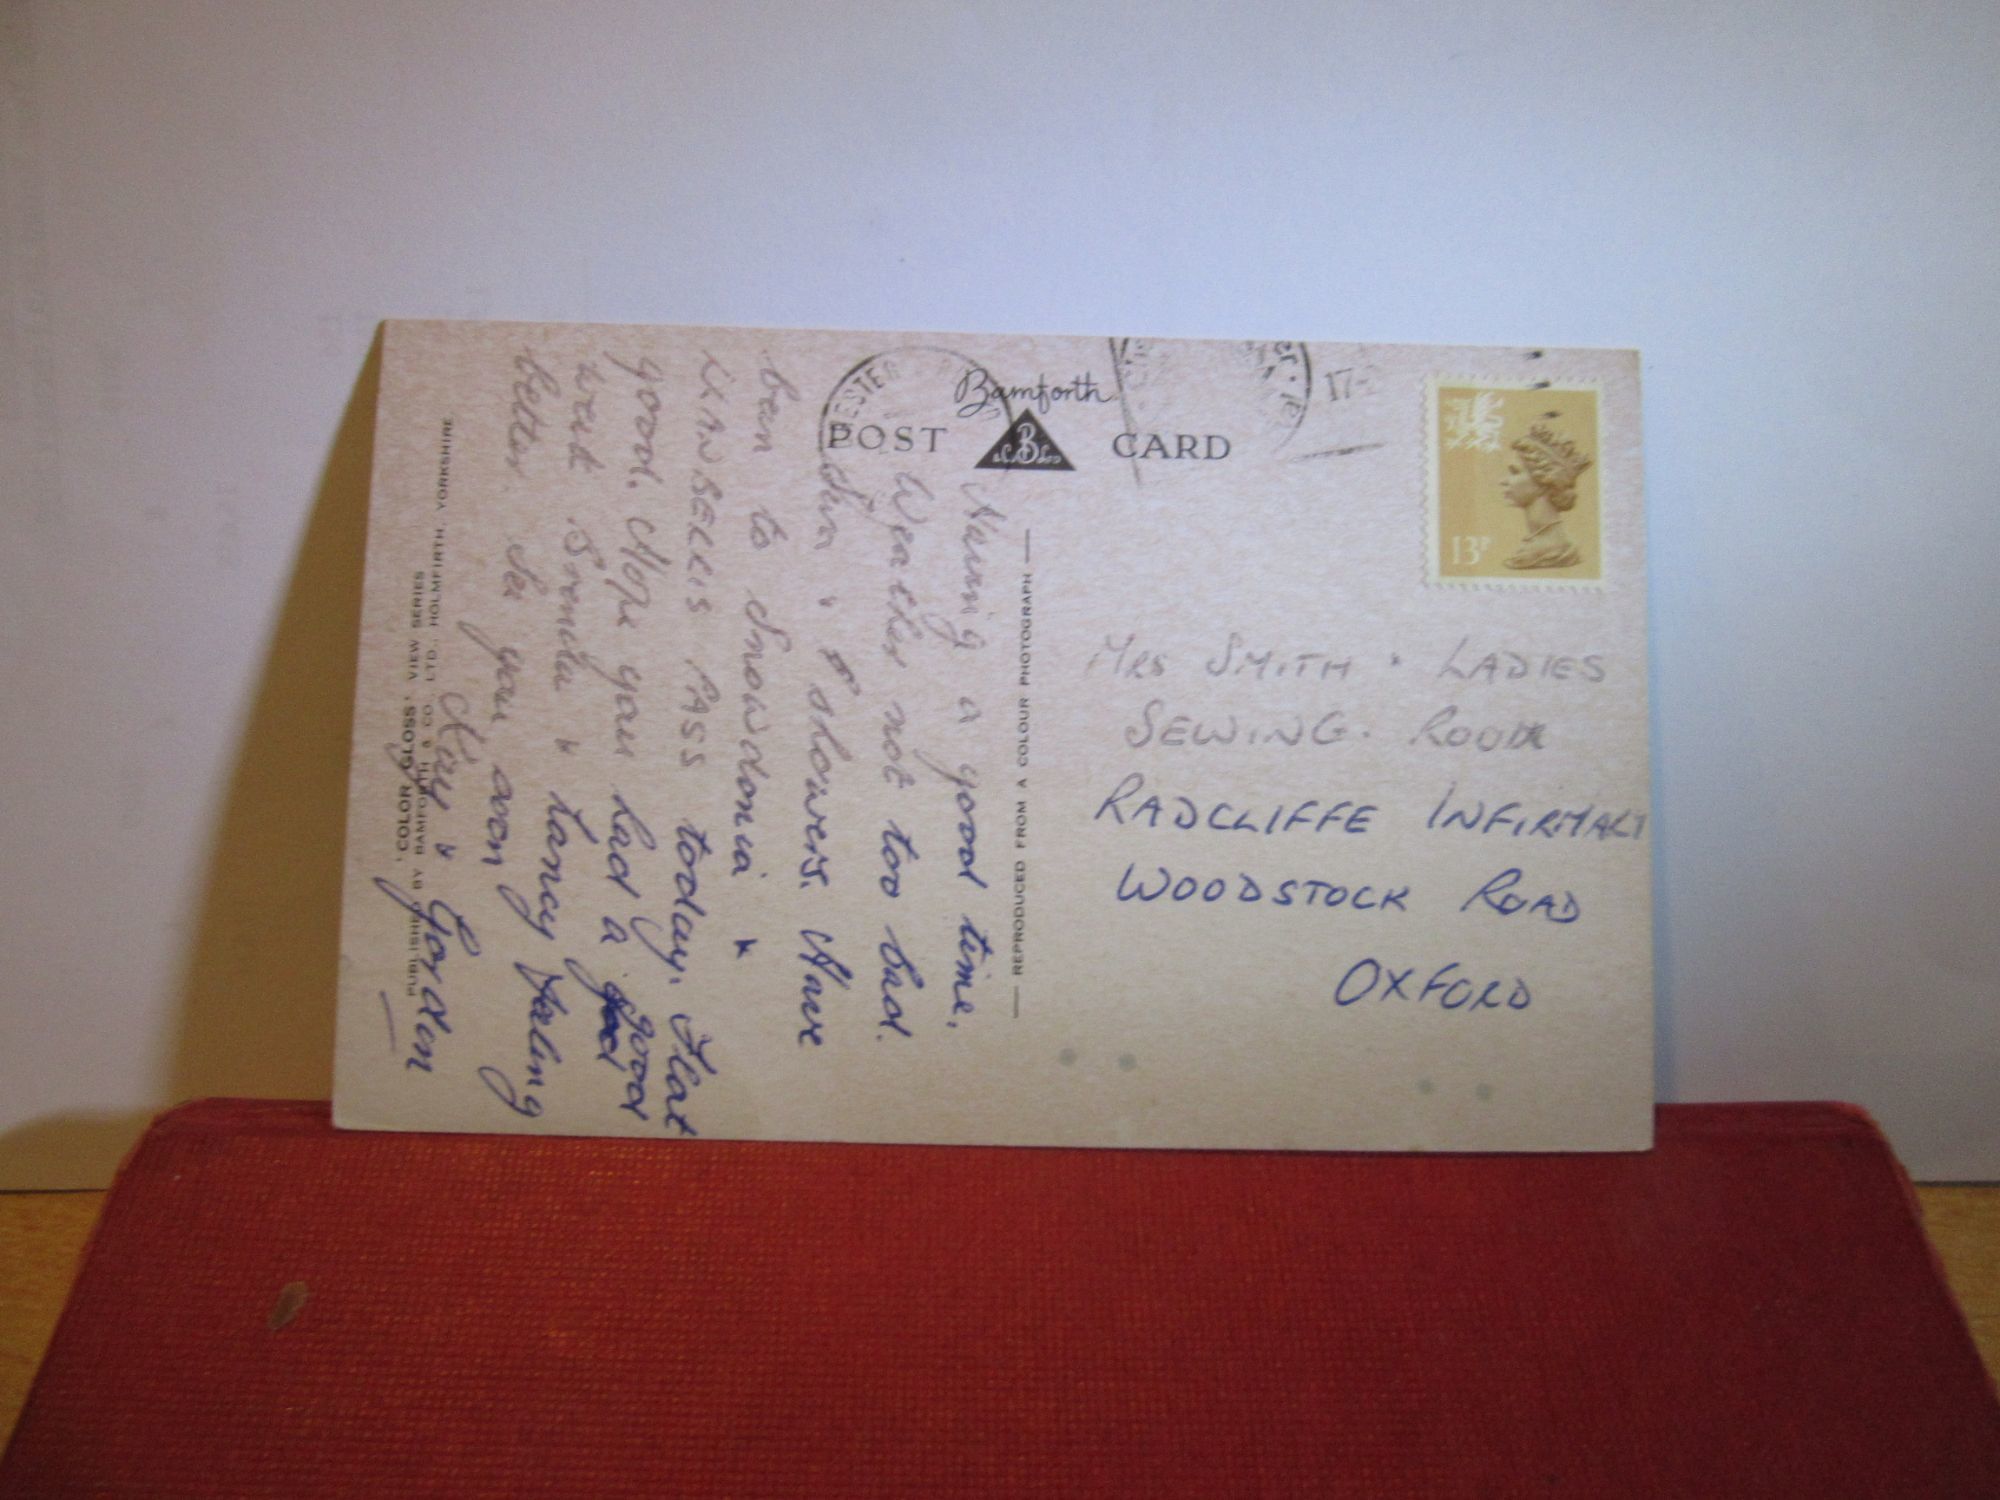 Bamforth
POST CARD
13P
MRS SMITH & LADIES
SEWING ROOM
RADCLIFFE INFIRMARY
WOODSTOCK ROAD
OXFORD
REPRODUCED FROM A COLOUR PHOTOGRAPH
Having a good time.
Weather not too bad.
Sun & showers. Have
been to Snowdonia &
PASS today. Flat
good. Hope you had a good
week Brenda & Tansy feling
better. See you soon
Kay & Gordon
'COLOR GLOSS' VIEW SERIES
PUBLISHED BY BAMFORTH & CO. LTD., HOLMFIRTH, YORKSHIRE